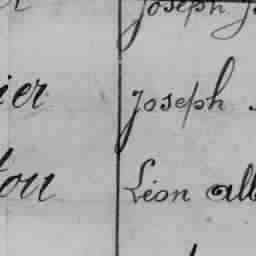 Joseph
ier Joseph
ou Léon all